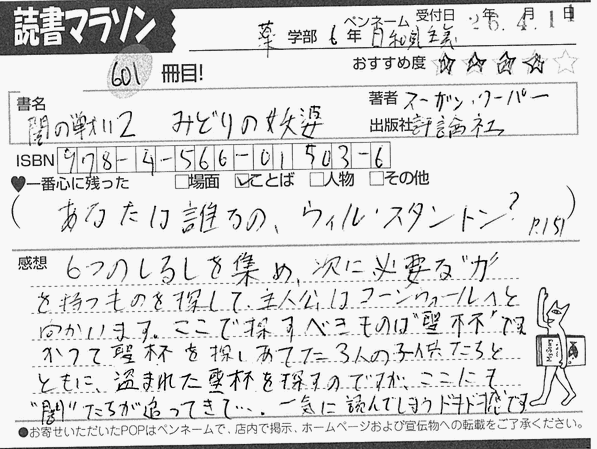 読書マラソン
ペンネーム 受付日 26年4月1日
薬 学部 6年 日和見主義
601 冊目!
おすすめ度 ★★★★☆
書名 闇の戦い2 みどりの妖婆
著者 スーザン・クーパー
出版社 評論社
ISBN 978-4-566-01503-6
♥一番心に残った □場面 ☑ことば □人物 □その他
(あなたは誰なの、ウィル・スタントン? P.151)
感想 6つのしるしを集め、次に必要な"力"
を持つものを探して、主人公はコーンウォールへと
向かいます。ここで探すべきものは"聖杯"です
かつて聖杯を探しあてた3人の子供たちと
ともに、盗まれた聖杯を探すのですが、ここにも
"闇"たちが追ってきて…。一気に読んでしまうドキドキ感です
●お寄せいただいたPOPはペンネームで、店内で掲示、ホームページおよび宣伝物への転載をご了承ください。